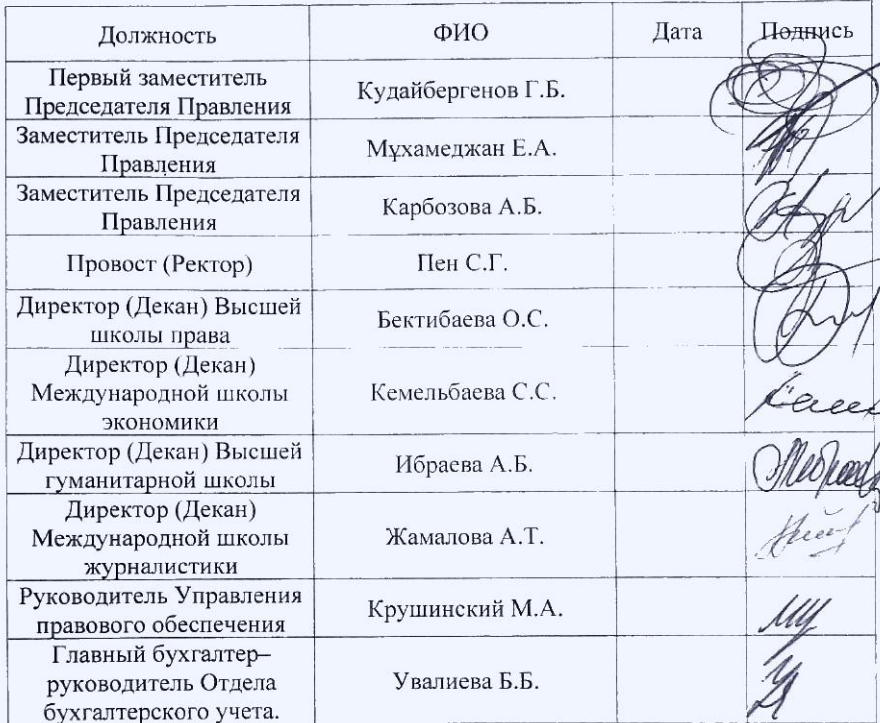 Должность ФИО Дата Подпись
Первый заместитель
Председателя Правления
Кудайбергенов Г.Б.
Заместитель Председателя
Правления
Мұхамеджан Е.А.
Заместитель Председателя
Правления
Карбозова А.Б.
Провост (Ректор) Пен С.Г.
Директор (Декан) Высшей
школы права
Бектибаева О.С.
Директор (Декан)
Международной школы
экономики
Кемельбаева С.С.
Директор (Декан) Высшей
гуманитарной школы
Ибраева А.Б.
Директор (Декан)
Международной школы
журналистики
Жамалова А.Т.
Руководитель Управления
правового обеспечения
Крушинский М.А.
Главный бухгалтер–
руководитель Отдела
бухгалтерского учета.
Увалиева Б.Б.